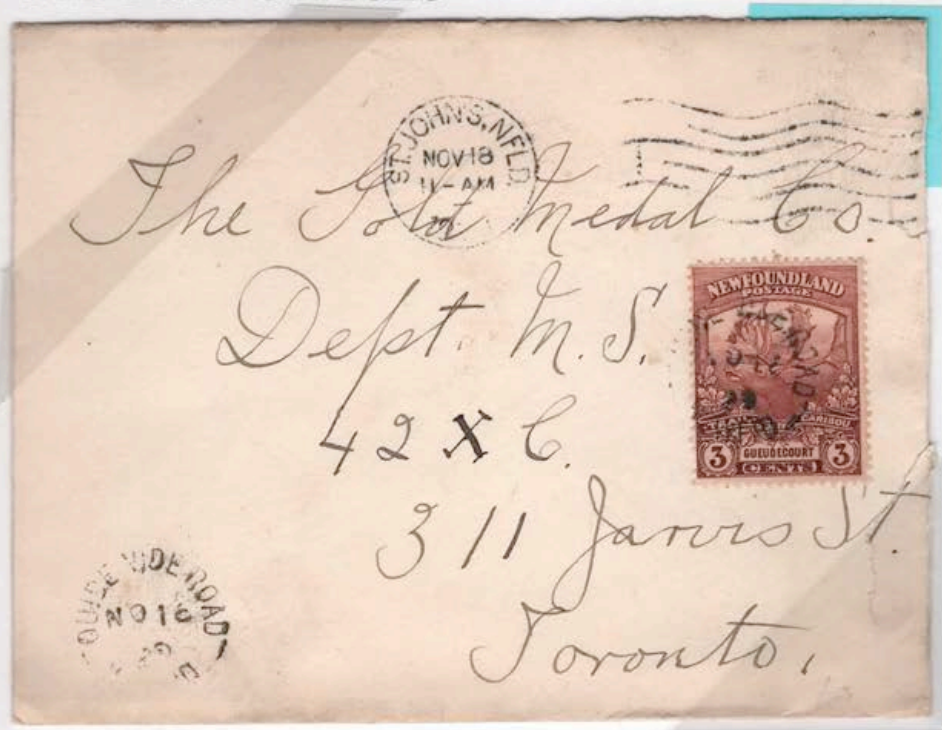 ST. JOHN'S, NFLD.
NOV 18
11 - AM
The Gold Medal Co
Dept. M. S.
42 X C.
311 Jarvis St.
Toronto.
NEWFOUNDLAND
POSTAGE
TRAIL CARIBOU
GUEUDECOURT
3 CENTS 3
QUIDI VIDI ROAD
NO 18